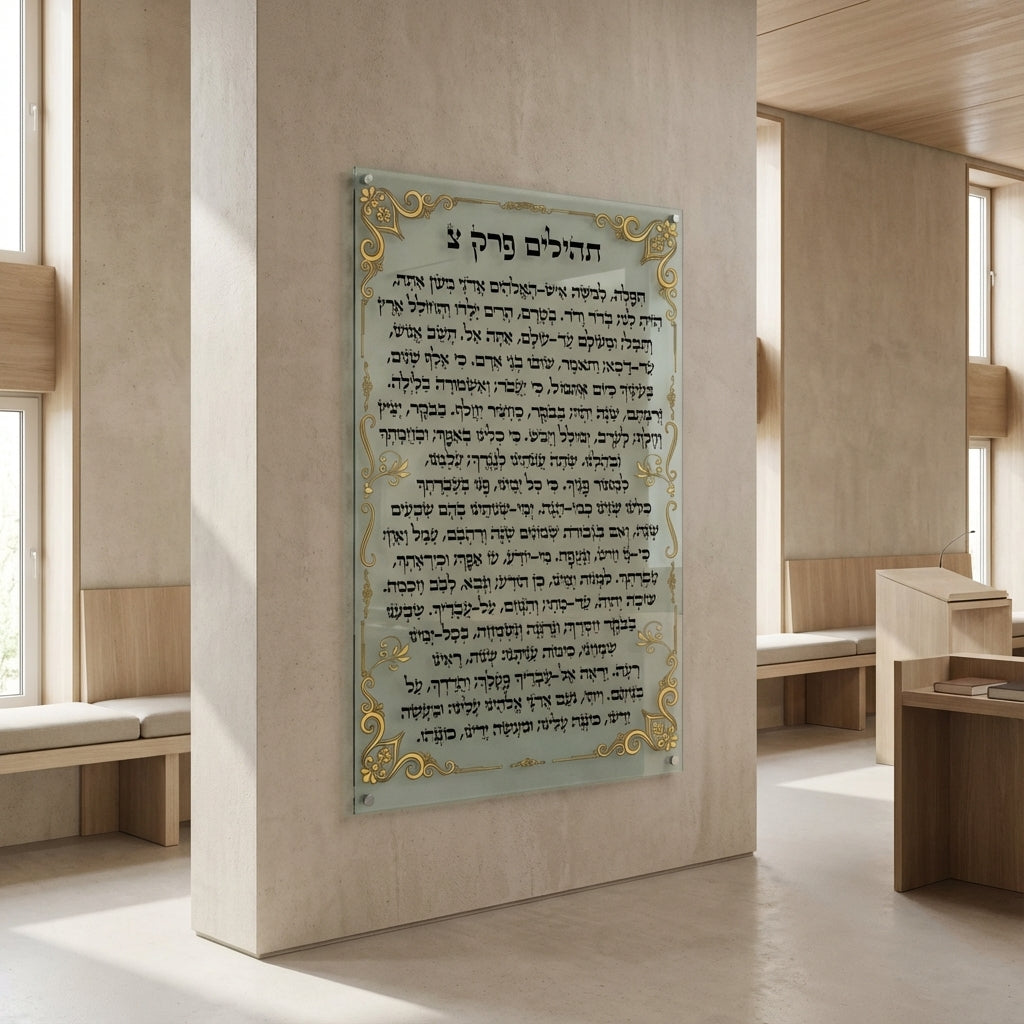 תהילים פרק צ
תפלה, למשה איש-האלהים אדני מעון אתה,
היית לנו; בדר ודר. בטרם, הרים ילדו ותחולל ארץ
ותבל; ומעולם עד-עולם, אתה אל. תשב אנוש,
עד-דכא; ותאמר, שובו בני אדם. כי אלף שנים,
בעיניך כיום אתמול, כי יעבר; ואשמורה בלילה.
זרמתם, שנה יהיו; בבקר, כחציר יחלף. בבקר, יציץ
וחלף; לערב, ימולל ויבש. כי כלינו באפך; ובחמתך
נבהלנו. שתה עונתינו לנגדך; עלמנו,
למאור פניך. כי כל ימינו, פנו בעברתך
כלינו שנינו כמו-הגה. ימי-שנותינו בהם שבעים
שנה, ואם בגבורה שמונים שנה ורהבם, עמל ואון;
כי-גז חיש, ונעפה. מי-יודע, עז אפך; וכיראתך,
עברתך. למנות ימינו, כן הודע; ונבא, לבב חכמה.
שובה יהוה, עד-מתי; והנחם, על-עבדיך. שבענו
בבקר חסדך; ונרננה ונשמחה, בכל-ימינו
שמחנו, כימות עניתנו: שנות, ראינו
רעה. יראה אל-עבדיך פעלך; והדרך, על
בניהם. ויהי, נעם אדני אלהינו עלינו: ומעשה
ידינו, כוננה עלינו; ומעשה ידינו, כוננהו.